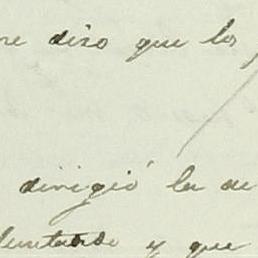 me dixo que los
dirigió la de
luntando y que